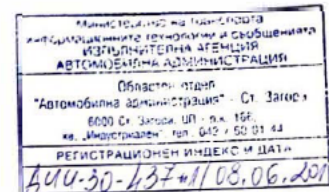 Министерство на транспорта
информационните технологии и съобщенията
ИЗПЪЛНИТЕЛНА АГЕНЦИЯ
АВТОМОБИЛНА АДМИНИСТРАЦИЯ
Областен отдел
"Автомобилна администрация" - Ст. Загора
6000 Ст. Загора, ЦП - п.к. 166,
кв. „Индустриален", тел. 042 /
РЕГИСТРАЦИОНЕН ИНДЕКС И ДАТА
08.06.201